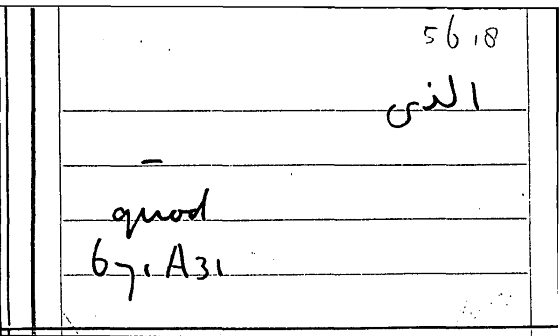 56,8
الذى
–
quod
67, A31